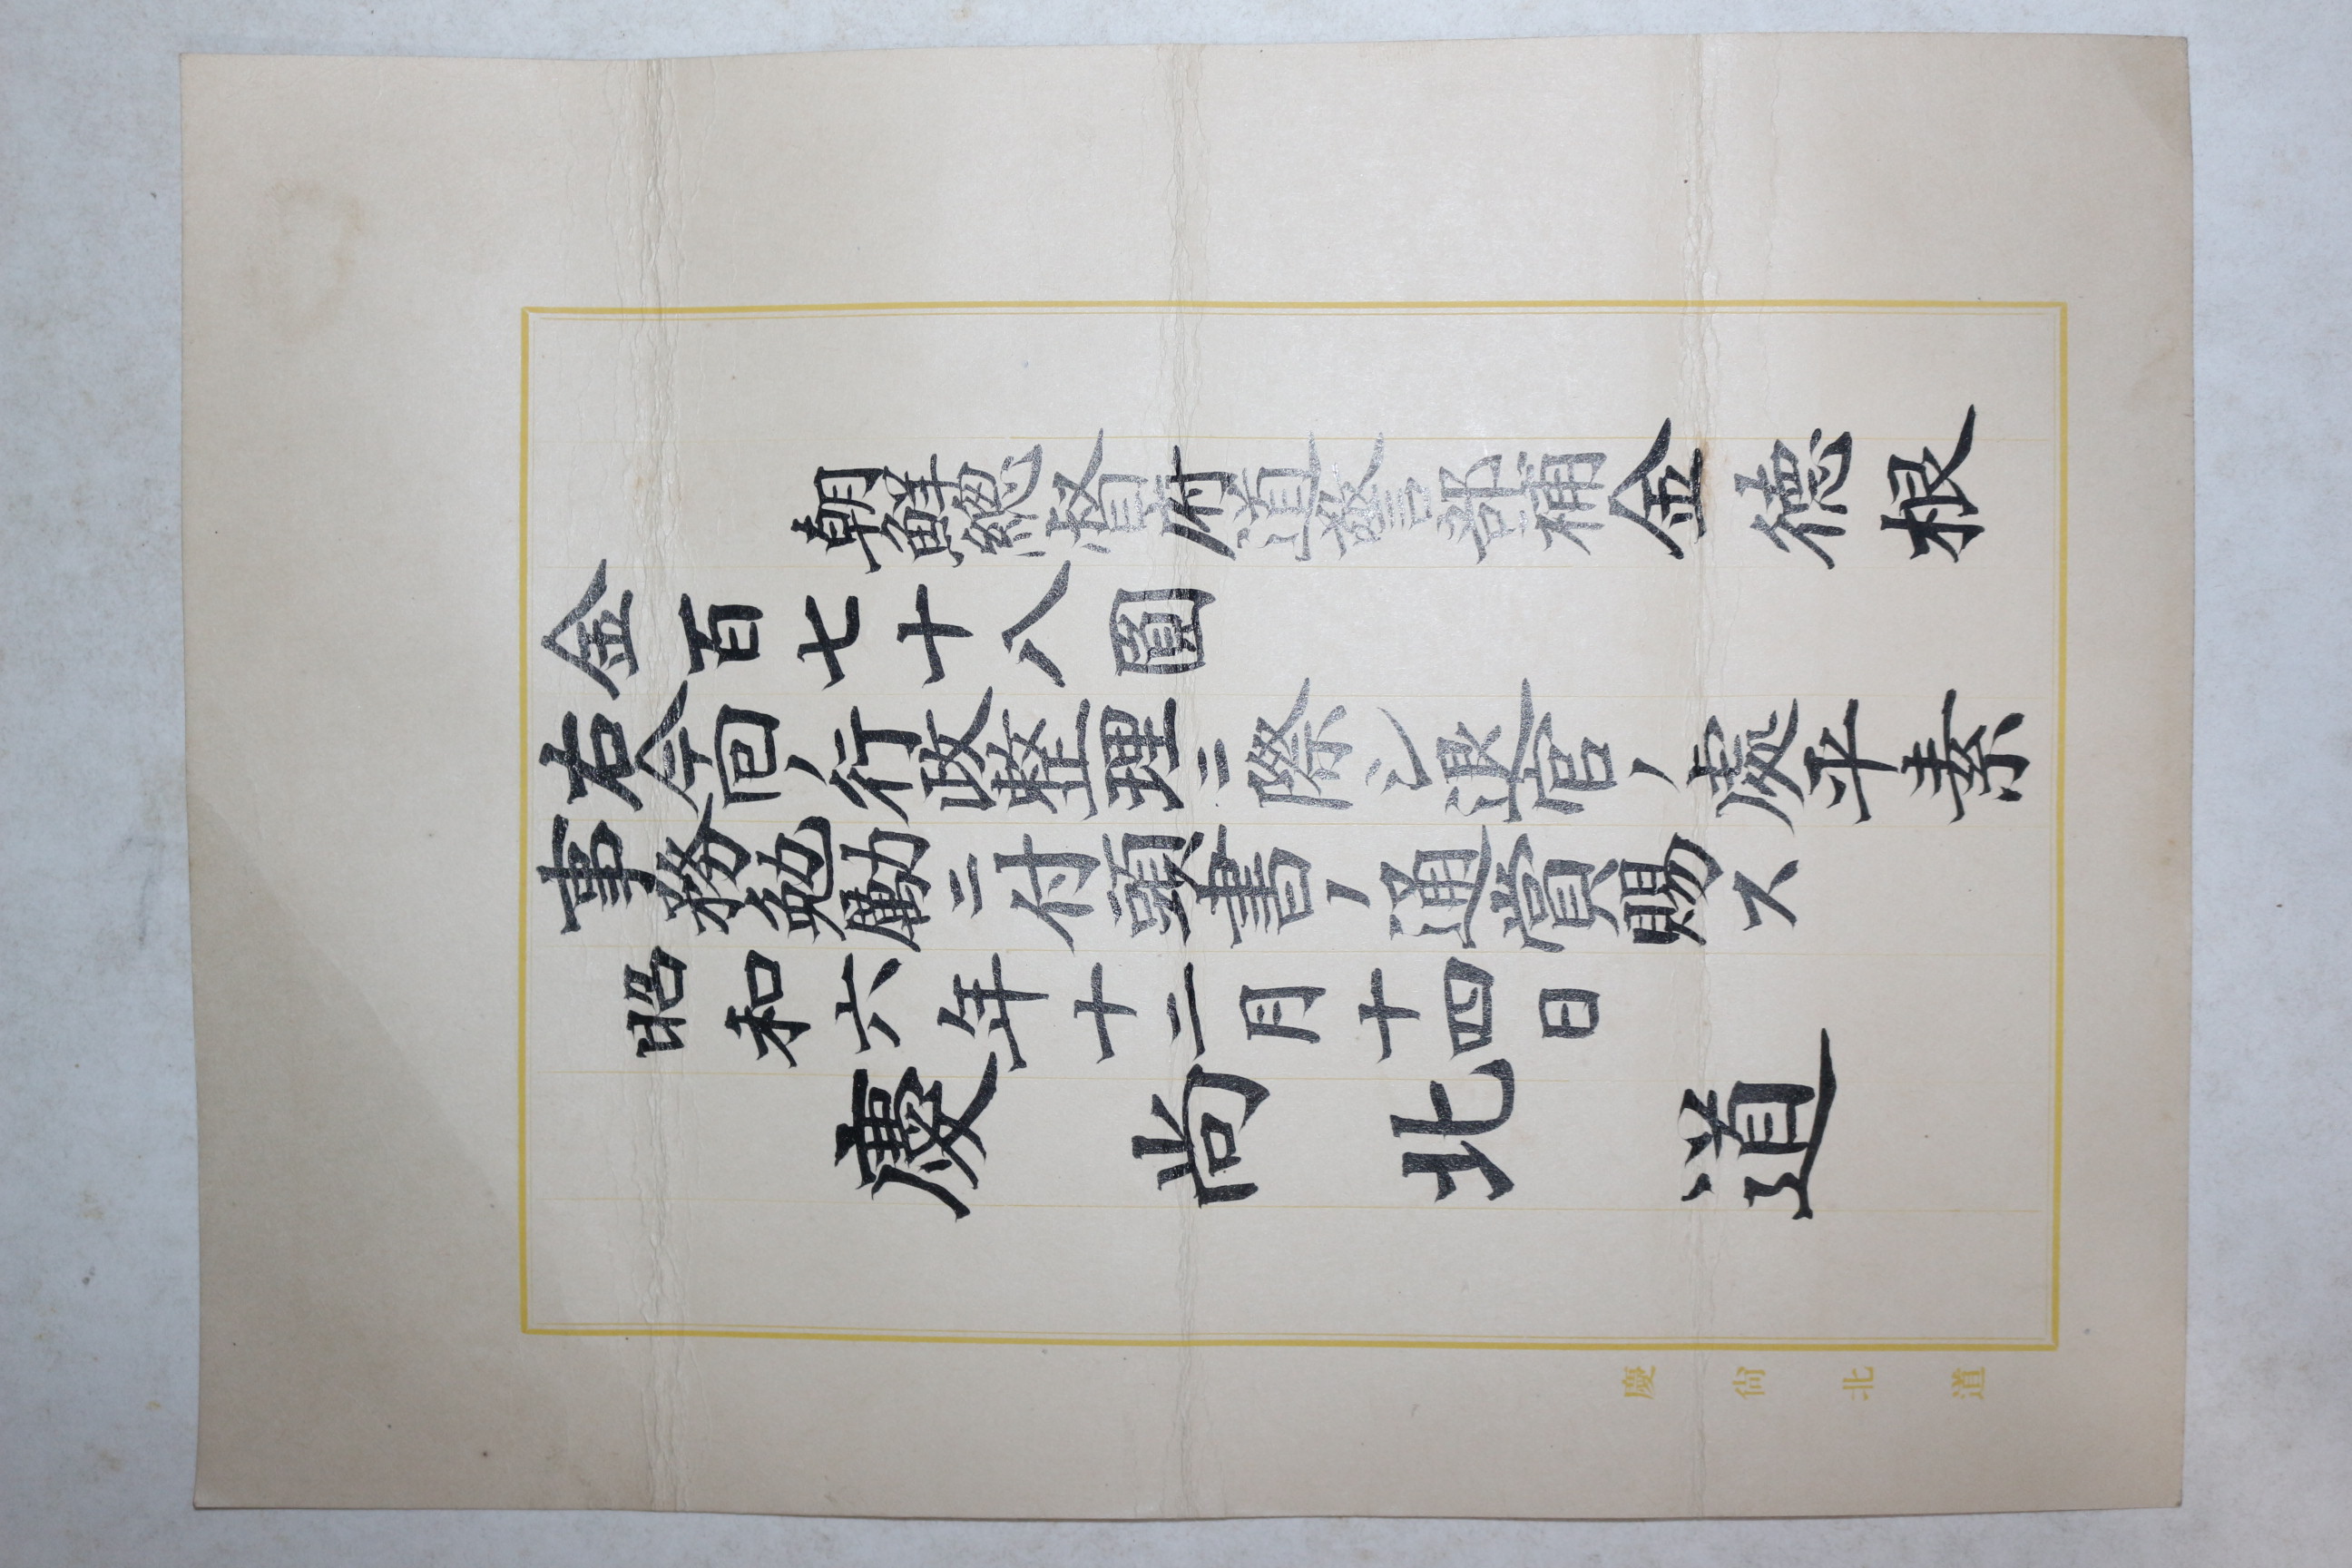 朝鮮總督府道警部補金德根
金百七十八圓
右今囘ノ行政整理ニ際シ退官ノ處平素
事務勉勵ニ付頭書ノ通賞賜ス
昭和六年十二月十四日
慶尚北道
慶尙北道